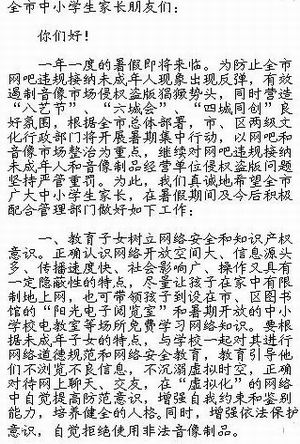 全市中小学生家长朋友们：
你们好！
一年一度的暑假即将来临。为防止全市
网吧违规接纳未成年人现象出现反弹，有效
遏制音像市场侵权盗版猖獗势头，同时营造
“八艺节”、“六城会”、“四城同创”良
好氛围，根据全市总体部署，市、区两级文
化行政部门将开展暑期集中行动，以网吧和
音像市场整治为重点，继续对网吧违规接纳
未成年人和音像制品经营单位侵权盗版问题
坚持严管重罚。为此，我们真诚地希望全市
广大中小学生家长，在暑假期间及今后积极
配合管理部门做好如下工作：
一、教育子女树立网络安全和知识产权
意识。正确认识网络开放空间大、信息源头
多、传播速度快、社会影响广、操作又具有
一定隐蔽性的特点，尽量让孩子在家中有限
制地上网，也可带领孩子到设在市、区图书
馆的“阳光电子阅览室”和暑期开放的中小
学校电教室等场所免费学习网络知识。要根
据未成年子女的特点，与学校一起对其进行
网络道德规范和网络安全教育，教育引导他
们不浏览不良信息，不沉溺虚拟时空，正确
对待网上聊天、交友，在“虚拟化”的网络
中自觉提高防范意识，增强自我约束和鉴别
能力，培养健全的人格。同时，增强依法保护
意识，自觉拒绝使用非法音像制品。